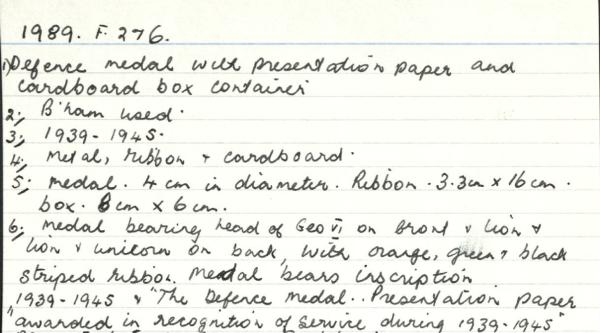 1989. F. 276.
1) Defence medal with presentation paper and
cardboard box container
2; B'ham used.
3; 1939-1945.
4; Metal, ribbon + cardboard.
5; medal. 4 cm in diameter. Ribbon. 3.3cm x 16cm.
box. 8cm x 6cm.
6; Medal bearing head of Geo VI on front & lion &
lion & unicorn on back, with orange, green & black
striped ribbon. Medal bears inscription
1939-1945 & "The Defence Medal.. Presentation paper
"awarded in recognition of service during 1939-1945"